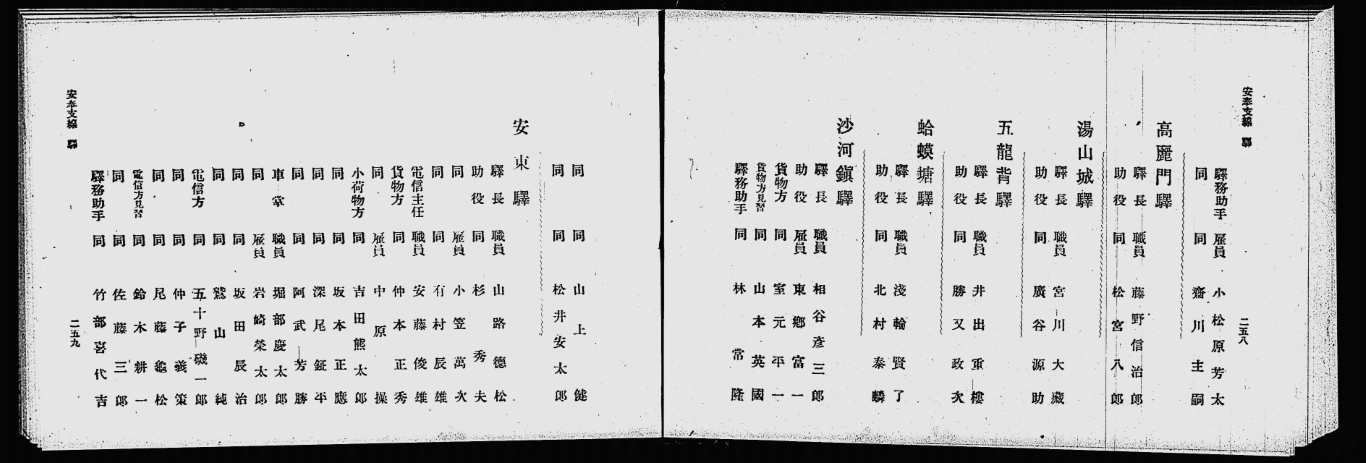 安奉支線 驛
二五八
驛務助手 雇員 小松原芳太
同 同 齋川主嗣
高麗門驛
驛長 職員 藤野信治郎
助役 同 松宮八郎
湯山城驛
驛長 職員 宮川大藏
助役 同 廣谷源助
五龍背驛
驛長 職員 井出重樓
助役 同 勝又政次
蛤蟆塘驛
驛長 職員 淺輪賢了
助役 同 北村泰麟
沙河鎭驛
驛長 職員 相谷彦三郎
助役 雇員 東鄕富一
貨物方 同 室元平一
貨物方見習 同 山本英國
驛務助手 同 林常隆
同 同 山上健
同 同 松井安太郎
安東驛
驛長 職員 山路德松
助役 同 杉秀夫
同 雇員 小笠萬次
同 同 有村辰雄
電信主任 職員 安藤俊雄
貨物方 同 仲本正秀
同 雇員 中原操
小荷物方 同 吉田熊太郎
同 同 坂本正應
同 同 深尾鉦平
同 同 阿武芳勝
車掌 職員 堀部慶太郎
同 雇員 岩崎榮太郎
同 同 坂田辰治
同 同 鷲山純
電信方 同 五十野磯一郎
同 同 仲子義策
同 同 尾藤龜松
電信方見習 同 鈴木耕一
同 同 佐藤三郎
驛務助手 同 竹部喜代吉
安奉支線 驛
二五九